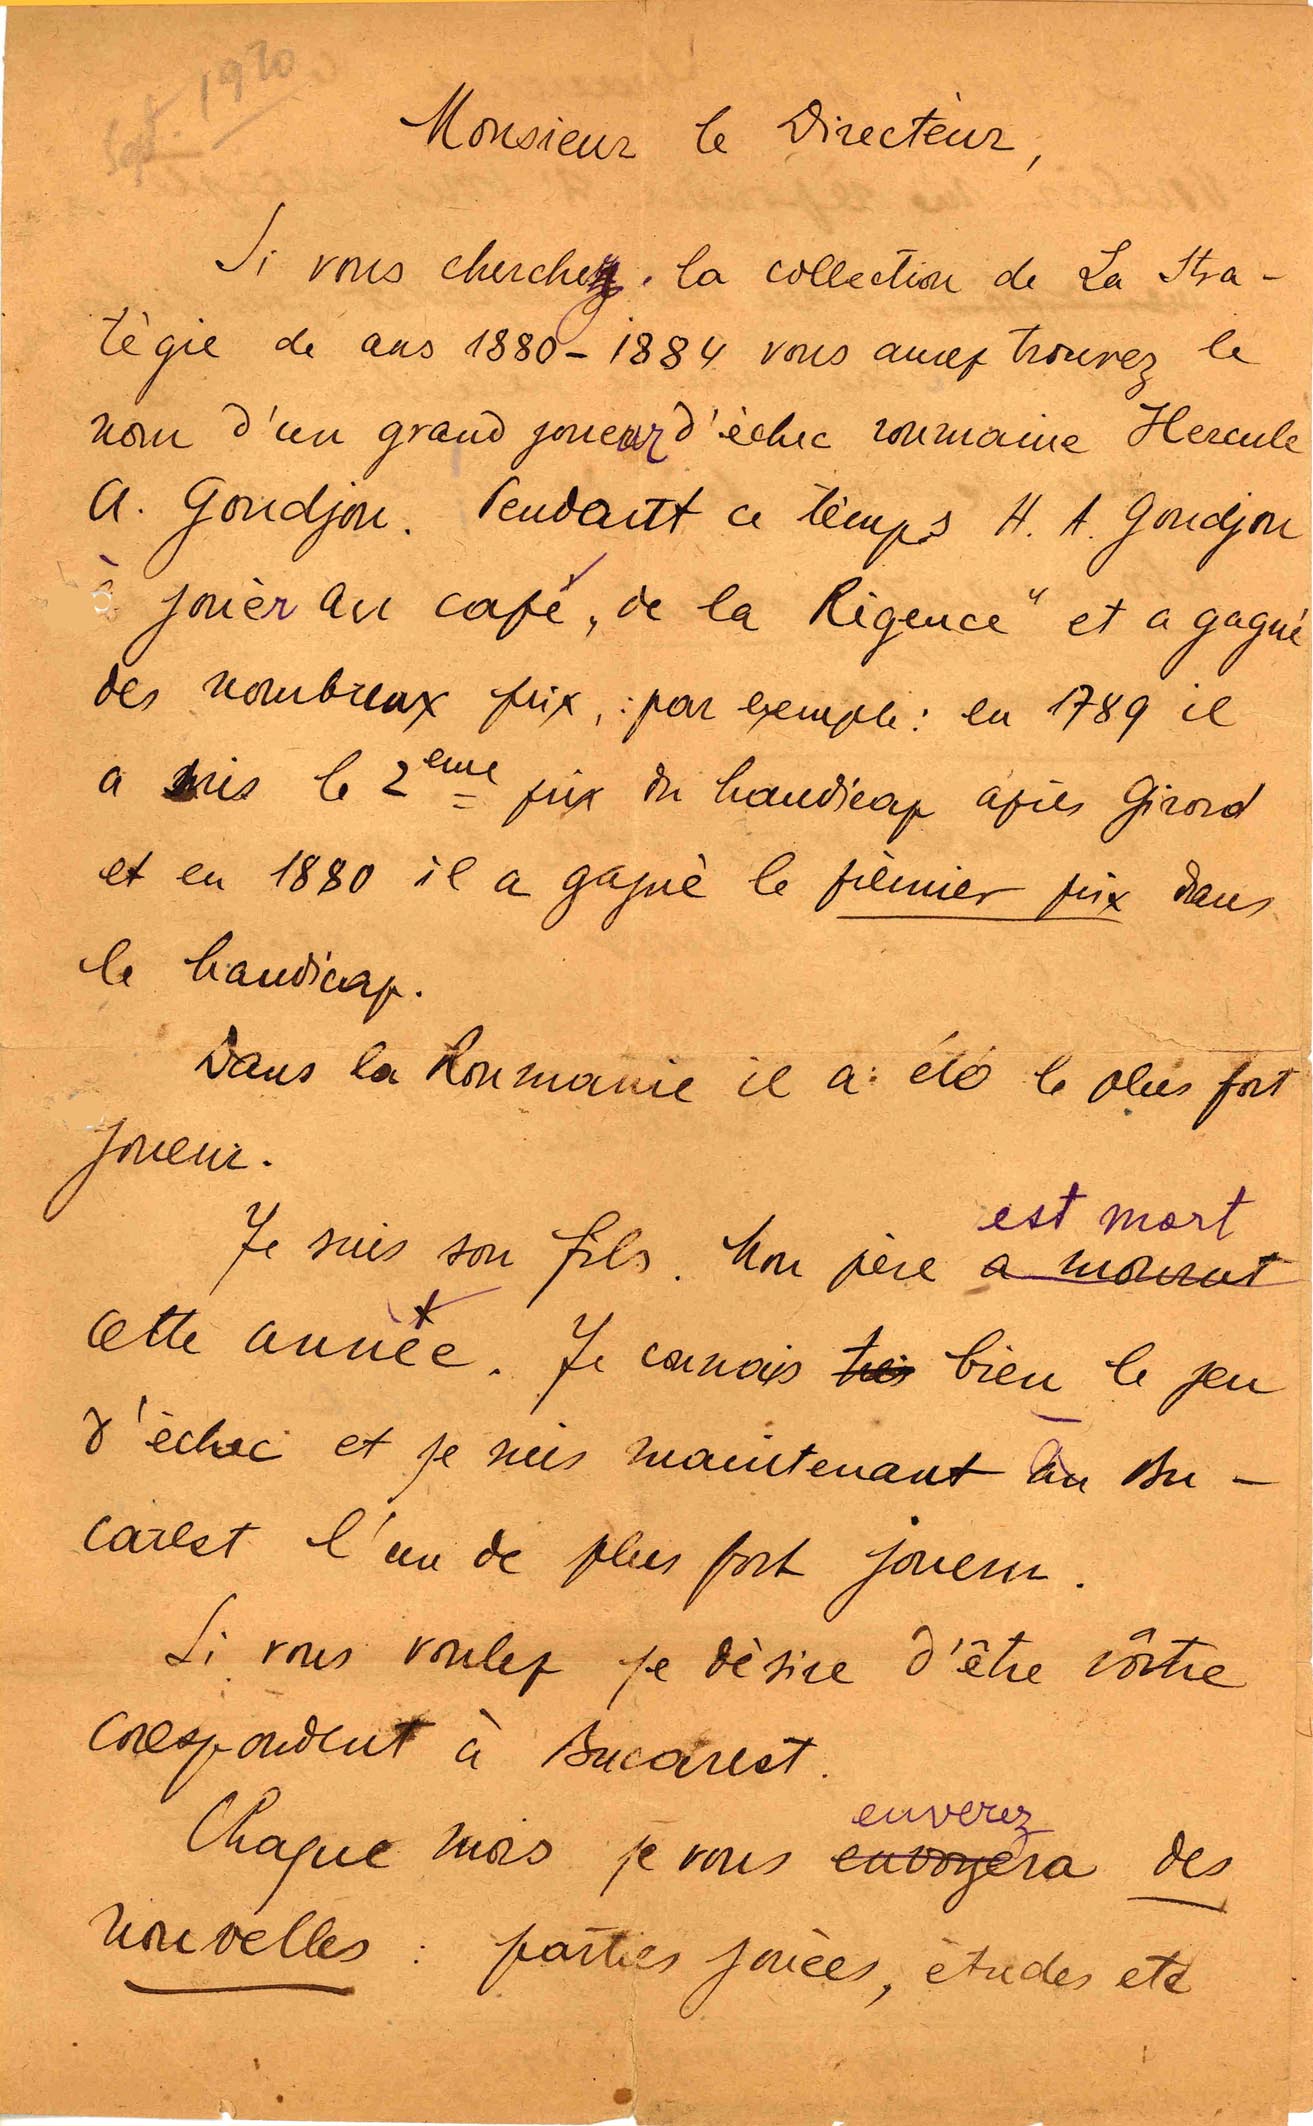 Sept. 1920
Monsieur le Directèur,
Si vous cherchez la collection de La Stra-
tègie de ans 1880-1884 vous aurez trouvez le
nom d'un grand joueur d'èchec roumaine Hercule
A. Gondjon. Pendant ce tèmps H. A. Gondjon
à jouèr au café „de la Règence" et a gagnè
des nombreux prix, : par exemple : en 1789 il
a pris le 2eme prix du handicap après Girond
et en 1880 il a gagnè le prèmier prix dans
le handicap.
Dans la Roumanie il a été le plus fort
joueur.
est mort
Je suis son fils. Mon père a mourut
cette annèe. Je connais très bien le jeu
d'èchec et je suis maintenant au Bu-
carest l'un de plus fort joueur.
Si vous voulez je dèsire d'être vôtre
corespondent à Bucarest.
enverez
Chaque mois je vous envoyera des
nouvelles : parties jouèes, ètudes etc